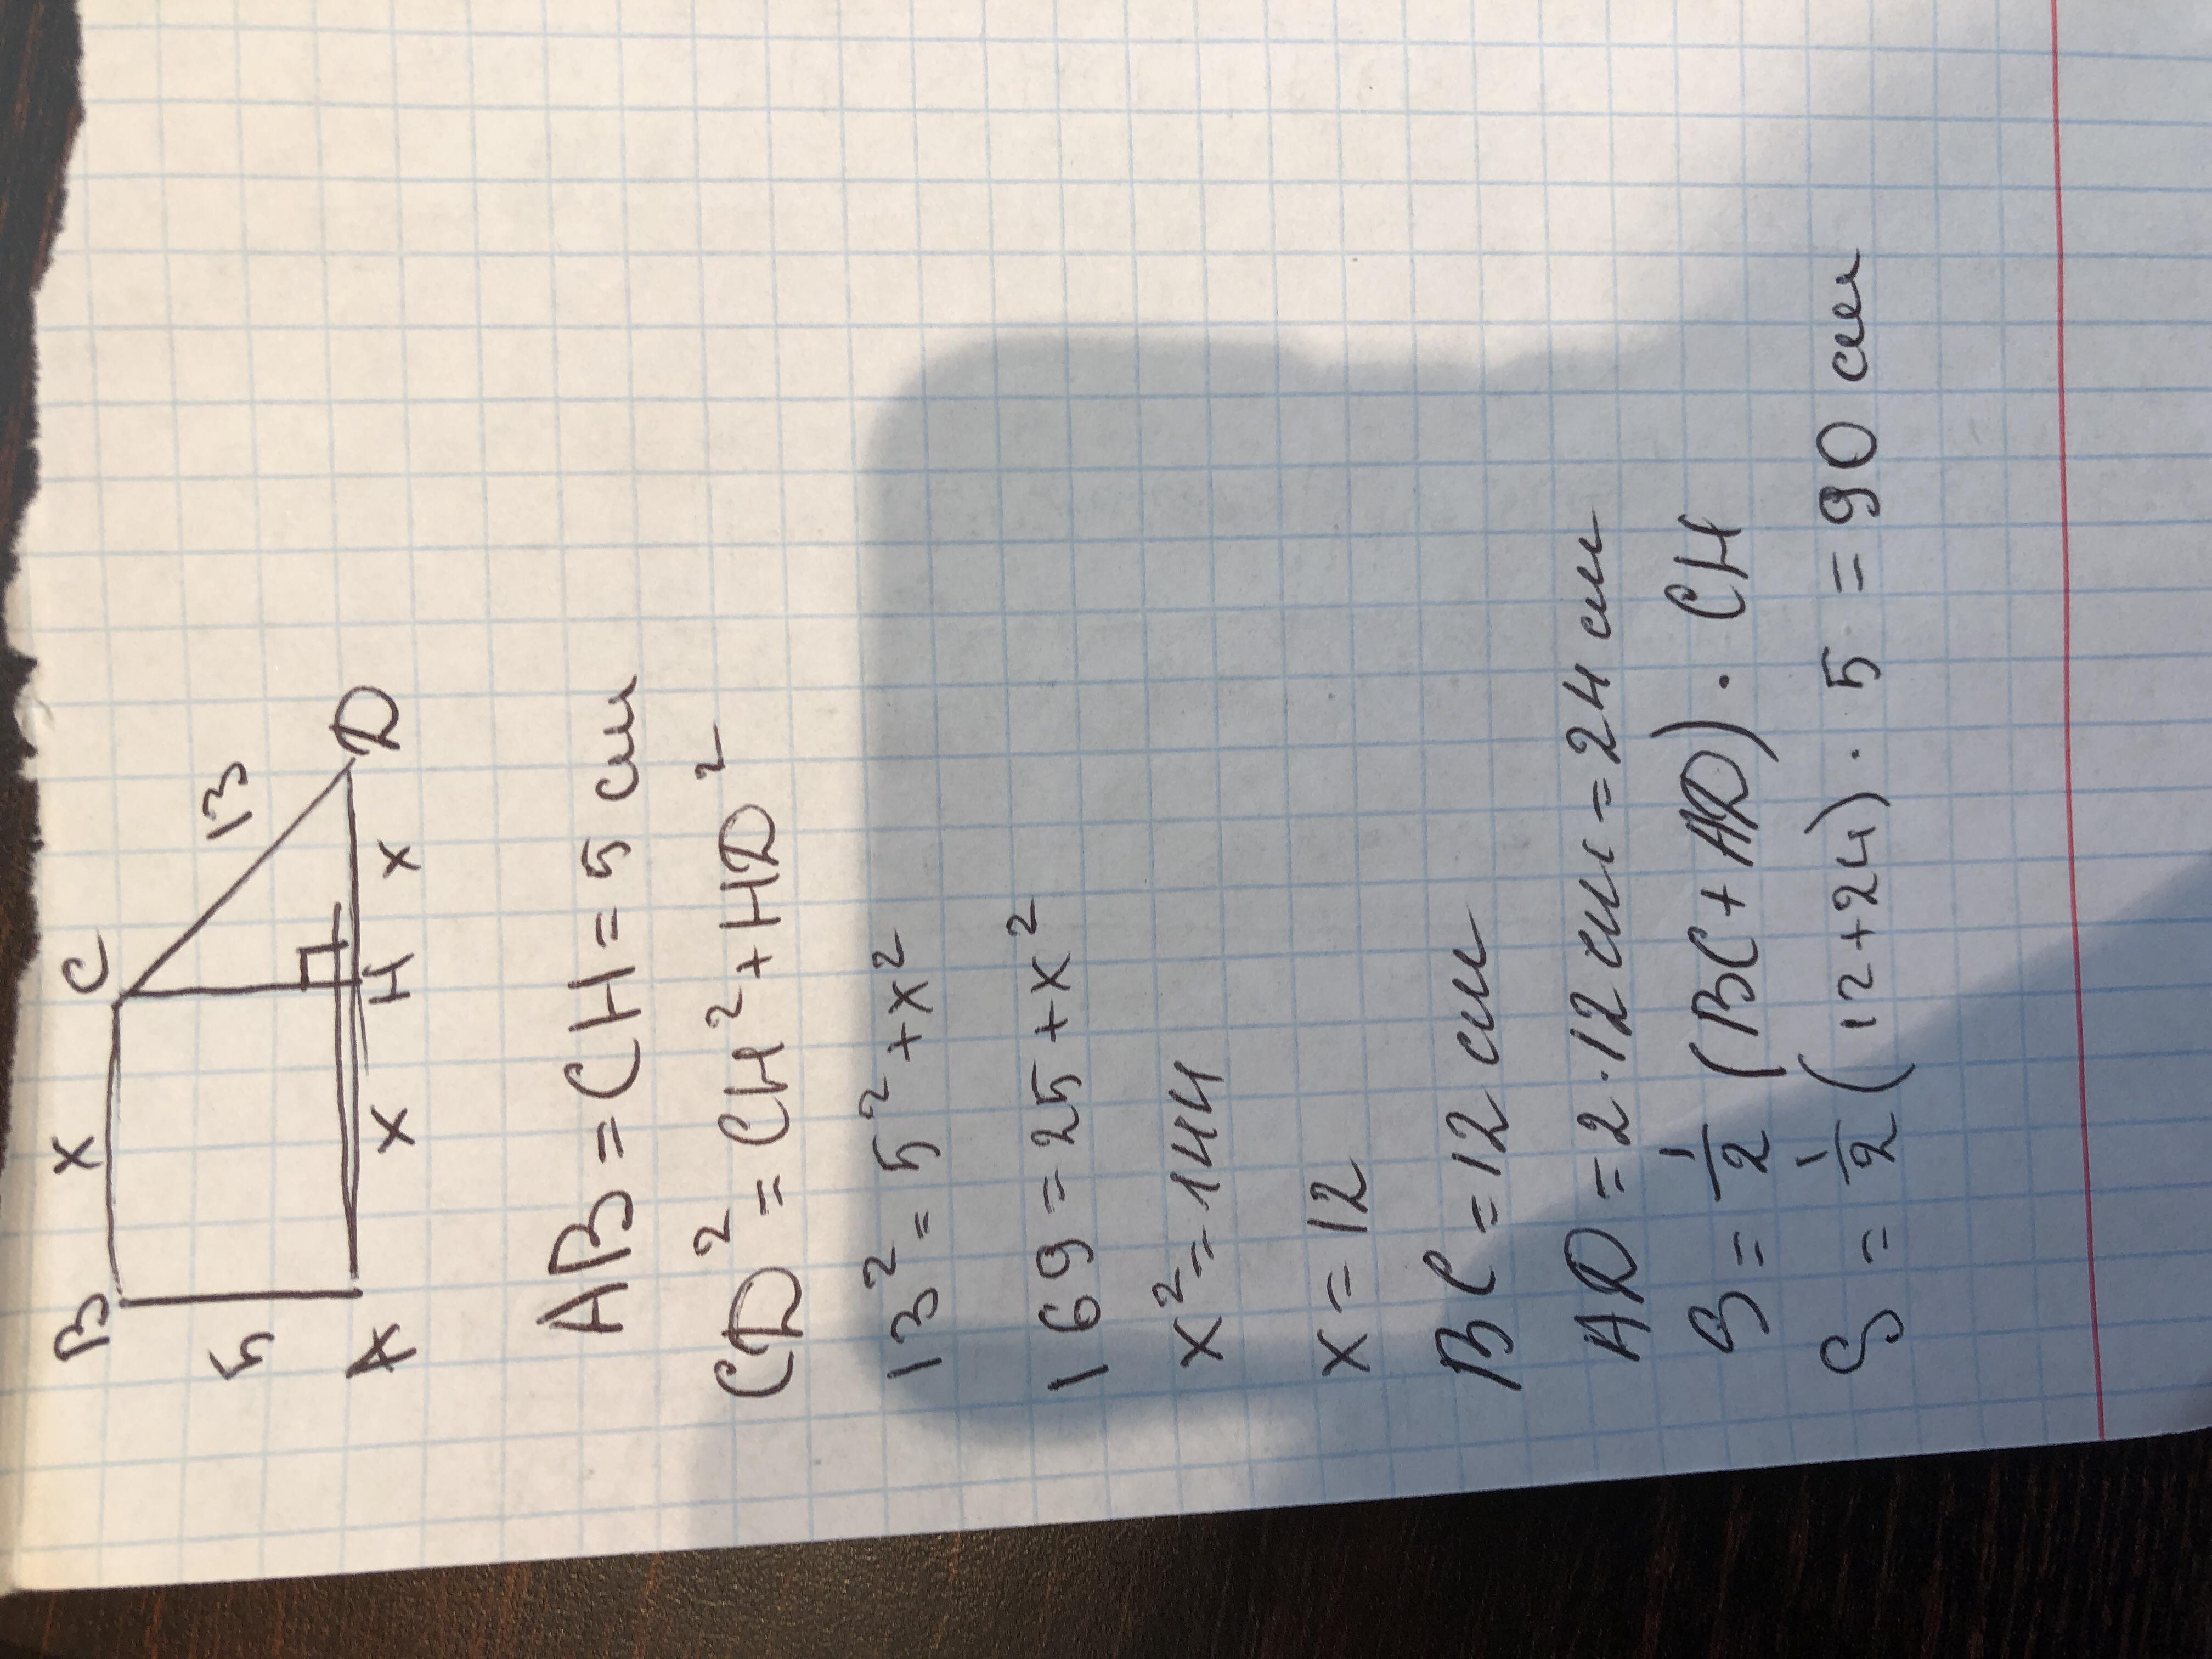 B x C
5 13
A x H x D
AB = CH = 5 см
CD² = CH² + HD²
13² = 5² + x²
169 = 25 + x²
x² = 144
x = 12
BC = 12 см
AD = 2 · 12 см = 24 см
S = 1/2 (BC + AD) · CH
S = 1/2 (12 + 24) · 5 = 90 см